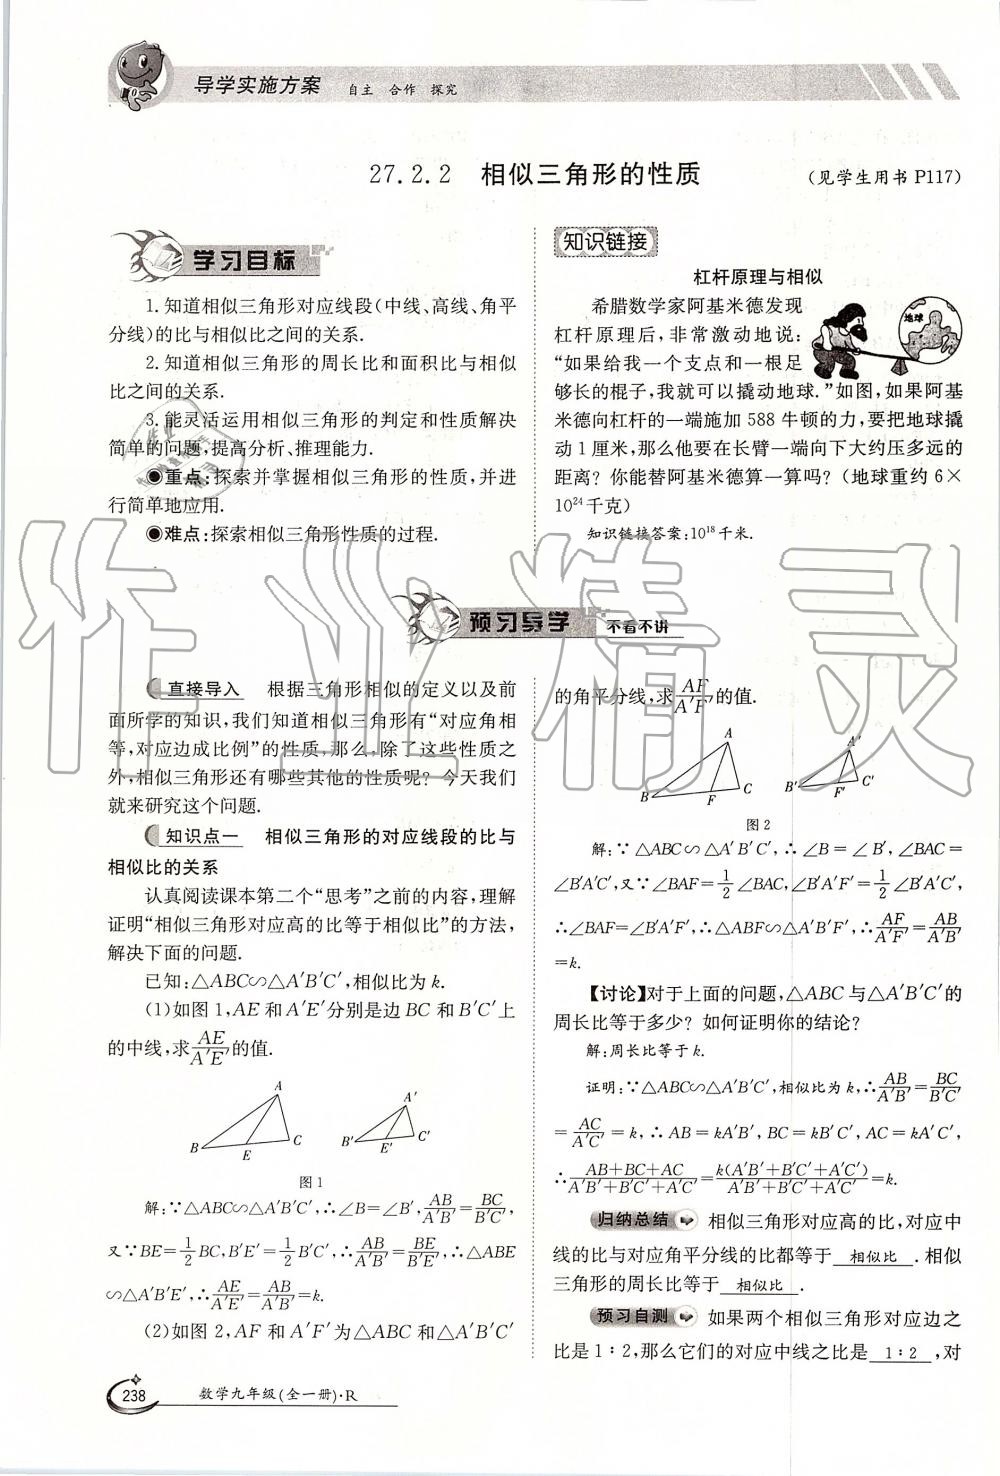 导学实施方案 自主 合作 探究
27.2.2 相似三角形的性质 (见学生用书 P117)
学习目标
1. 知道相似三角形对应线段(中线、高线、角平
分线)的比与相似比之间的关系.
2. 知道相似三角形的周长比和面积比与相似
比之间的关系.
3. 能灵活运用相似三角形的判定和性质解决
简单的问题,提高分析、推理能力.
●重点:探索并掌握相似三角形的性质,并进
行简单地应用.
●难点:探索相似三角形性质的过程.
知识链接
杠杆原理与相似
希腊数学家阿基米德发现
杠杆原理后,非常激动地说:
“如果给我一个支点和一根足
够长的棍子,我就可以撬动地球.”如图,如果阿基
米德向杠杆的一端施加 588 牛顿的力,要把地球撬
动 1 厘米,那么他要在长臂一端向下大约压多远的
距离?你能替阿基米德算一算吗?(地球重约 6×
10²⁴千克)
知识链接答案:10¹⁸千米.
地球
预习导学 不看不讲
直接导入 根据三角形相似的定义以及前
面所学的知识,我们知道相似三角形有“对应角相
等,对应边成比例”的性质,那么,除了这些性质之
外,相似三角形还有哪些其他的性质呢?今天我们
就来研究这个问题.
知识点一 相似三角形的对应线段的比与
相似比的关系
认真阅读课本第二个“思考”之前的内容,理解
证明“相似三角形对应高的比等于相似比”的方法,
解决下面的问题.
已知:△ABC∽△A′B′C′,相似比为 k.
(1)如图 1,AE 和 A′E′分别是边 BC 和 B′C′上
的中线,求AE/A′E′的值.
A B E C A′ B′ E′ C′
图 1
解:∵△ABC∽△A′B′C′,∴∠B=∠B′,AB/A′B′=BC/B′C′,
又∵BE=1/2BC,B′E′=1/2B′C′,∴AB/A′B′=BE/B′E′,∴△ABE
∽△A′B′E′,∴AE/A′E′=AB/A′B′=k.
(2)如图 2,AF 和 A′F′为△ABC 和△A′B′C′
的角平分线,求AF/A′F′的值.
A B F C A′ B′ F′ C′
图 2
解:∵△ABC∽△A′B′C′,∴∠B=∠B′,∠BAC=
∠B′A′C′,又∵∠BAF=1/2∠BAC,∠B′A′F′=1/2∠B′A′C′,
∴∠BAF=∠B′A′F′,∴△ABF∽△A′B′F′,∴AF/A′F′=AB/A′B′
=k.
【讨论】对于上面的问题,△ABC 与△A′B′C′的
周长比等于多少?如何证明你的结论?
解:周长比等于 k.
证明:∵△ABC∽△A′B′C′,相似比为 k,∴AB/A′B′=BC/B′C′
=AC/A′C′=k,∴AB=kA′B′,BC=kB′C′,AC=kA′C′,
∴(AB+BC+AC)/(A′B′+B′C′+A′C′)=k(A′B′+B′C′+A′C′)/(A′B′+B′C′+A′C′)=k.
归纳总结 相似三角形对应高的比,对应中
线的比与对应角平分线的比都等于 相似比 .相似
三角形的周长比等于 相似比 .
预习自测 如果两个相似三角形对应边之
比是 1∶2,那么它们的对应中线之比是 1∶2 ,对
238 数学九年级(全一册)·R
作业精灵